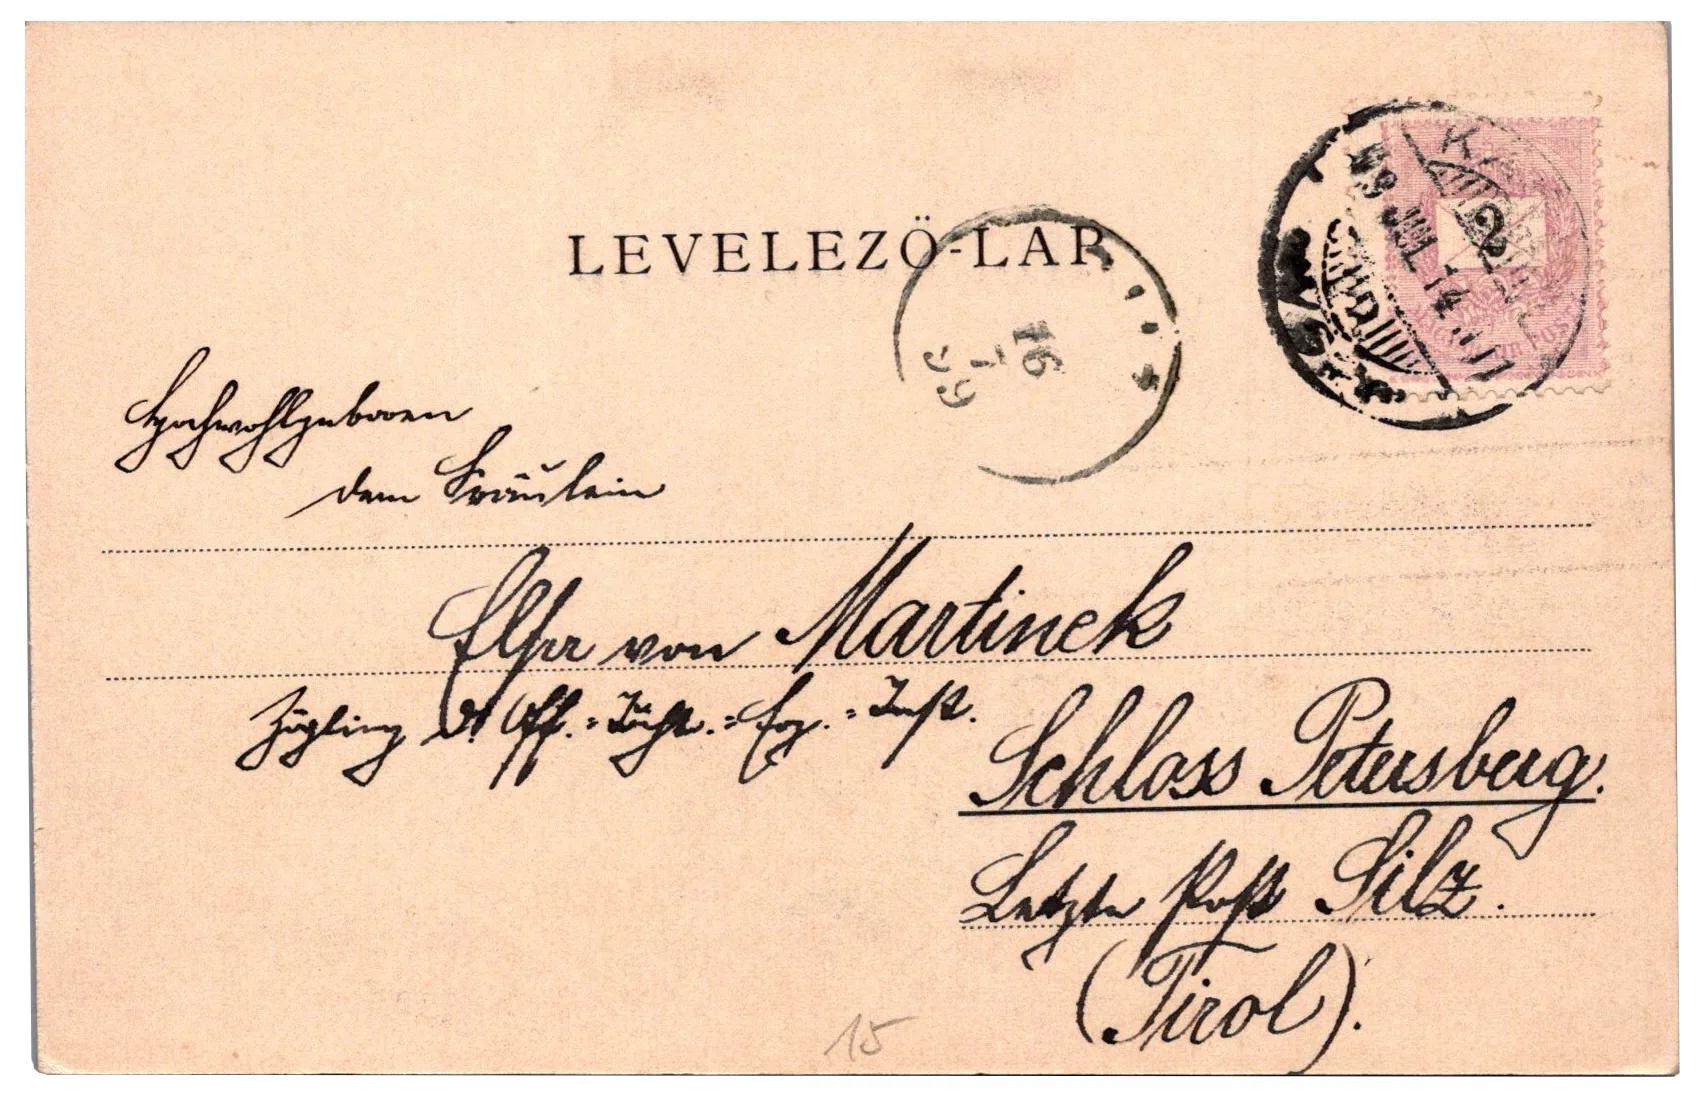 LEVELEZÖ-LAP
2
99 JUL 14
16
7
99
Hochwohlgeboren
dem Fräulein
Elsa von Martinek
Zögling d. Off.=Töcht.=Erz.=Inst.
Schloss Petersberg.
Letzte Post Silz.
(Tirol).
15